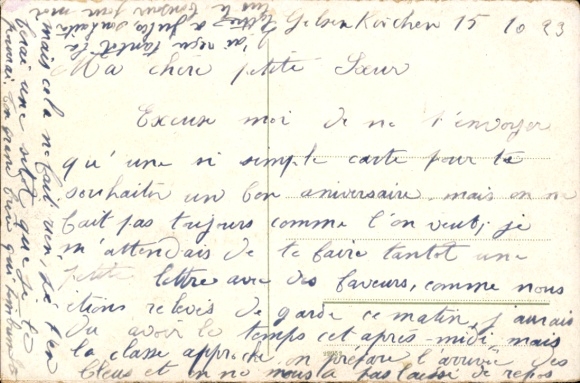 Gelsen Kirchen 15 10 23
Ma chère petite Sœur
Excuse moi de ne t'envoyer
qu'une si simple carte pour te
souhaiter un bon aniversaire, mais on ne
fait pas toujours comme l'on veut, je
m'attendais de te faire tantot une
petite lettre avec des faveurs, comme nous
étions relevés de garde ce matin, j'aurais
du avoir le temps cet après-midi, mais
la classe approche on prépare l'arrivée des
bleus et on ne nous a pas laissé de repos
mais cela ne fait rien, je t'en
ferai une sitot que je le
pourrai. Ton grand frère qui
j'ai reçu tantot la
lettre à Jules, souhaite
lui le bonjour pour moi